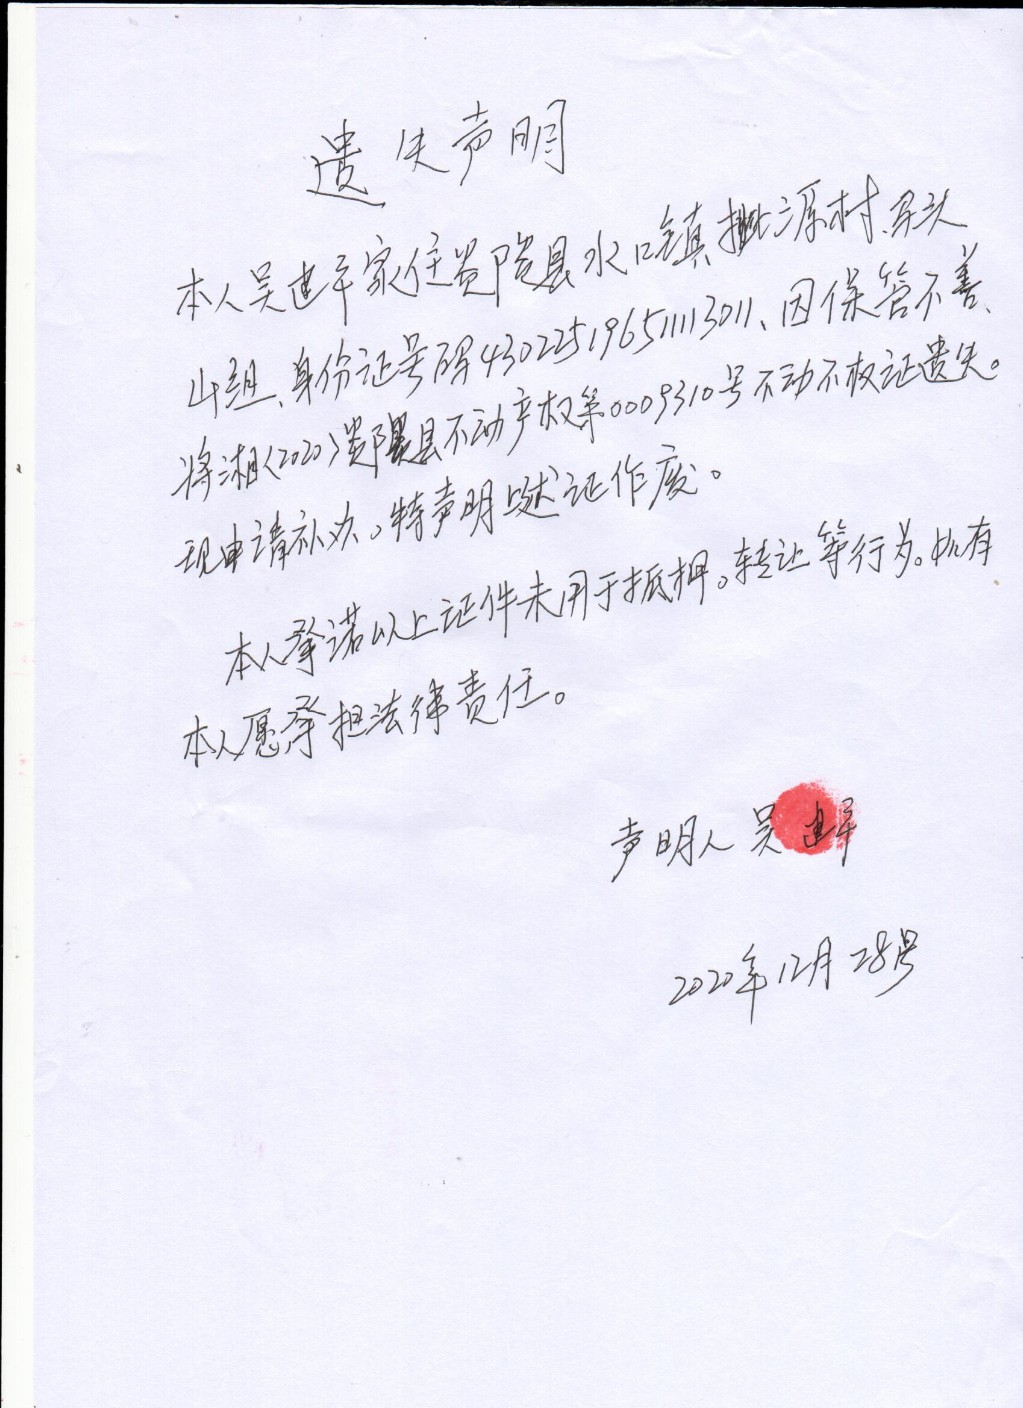 遗失声明
本人吴建平家住炎陵县水口镇 源村、马头
山组、身份证号码430225196511113011、因保管不善、
将湘<2020>炎陵县不动产权第0009310号不动不权证遗失。
现申请补办。特声明上述证作废。
本人承诺以上证件未用于抵押。转让等行为。如有
本人愿承担法律责任。
声明人 吴建平
2020年12月28号